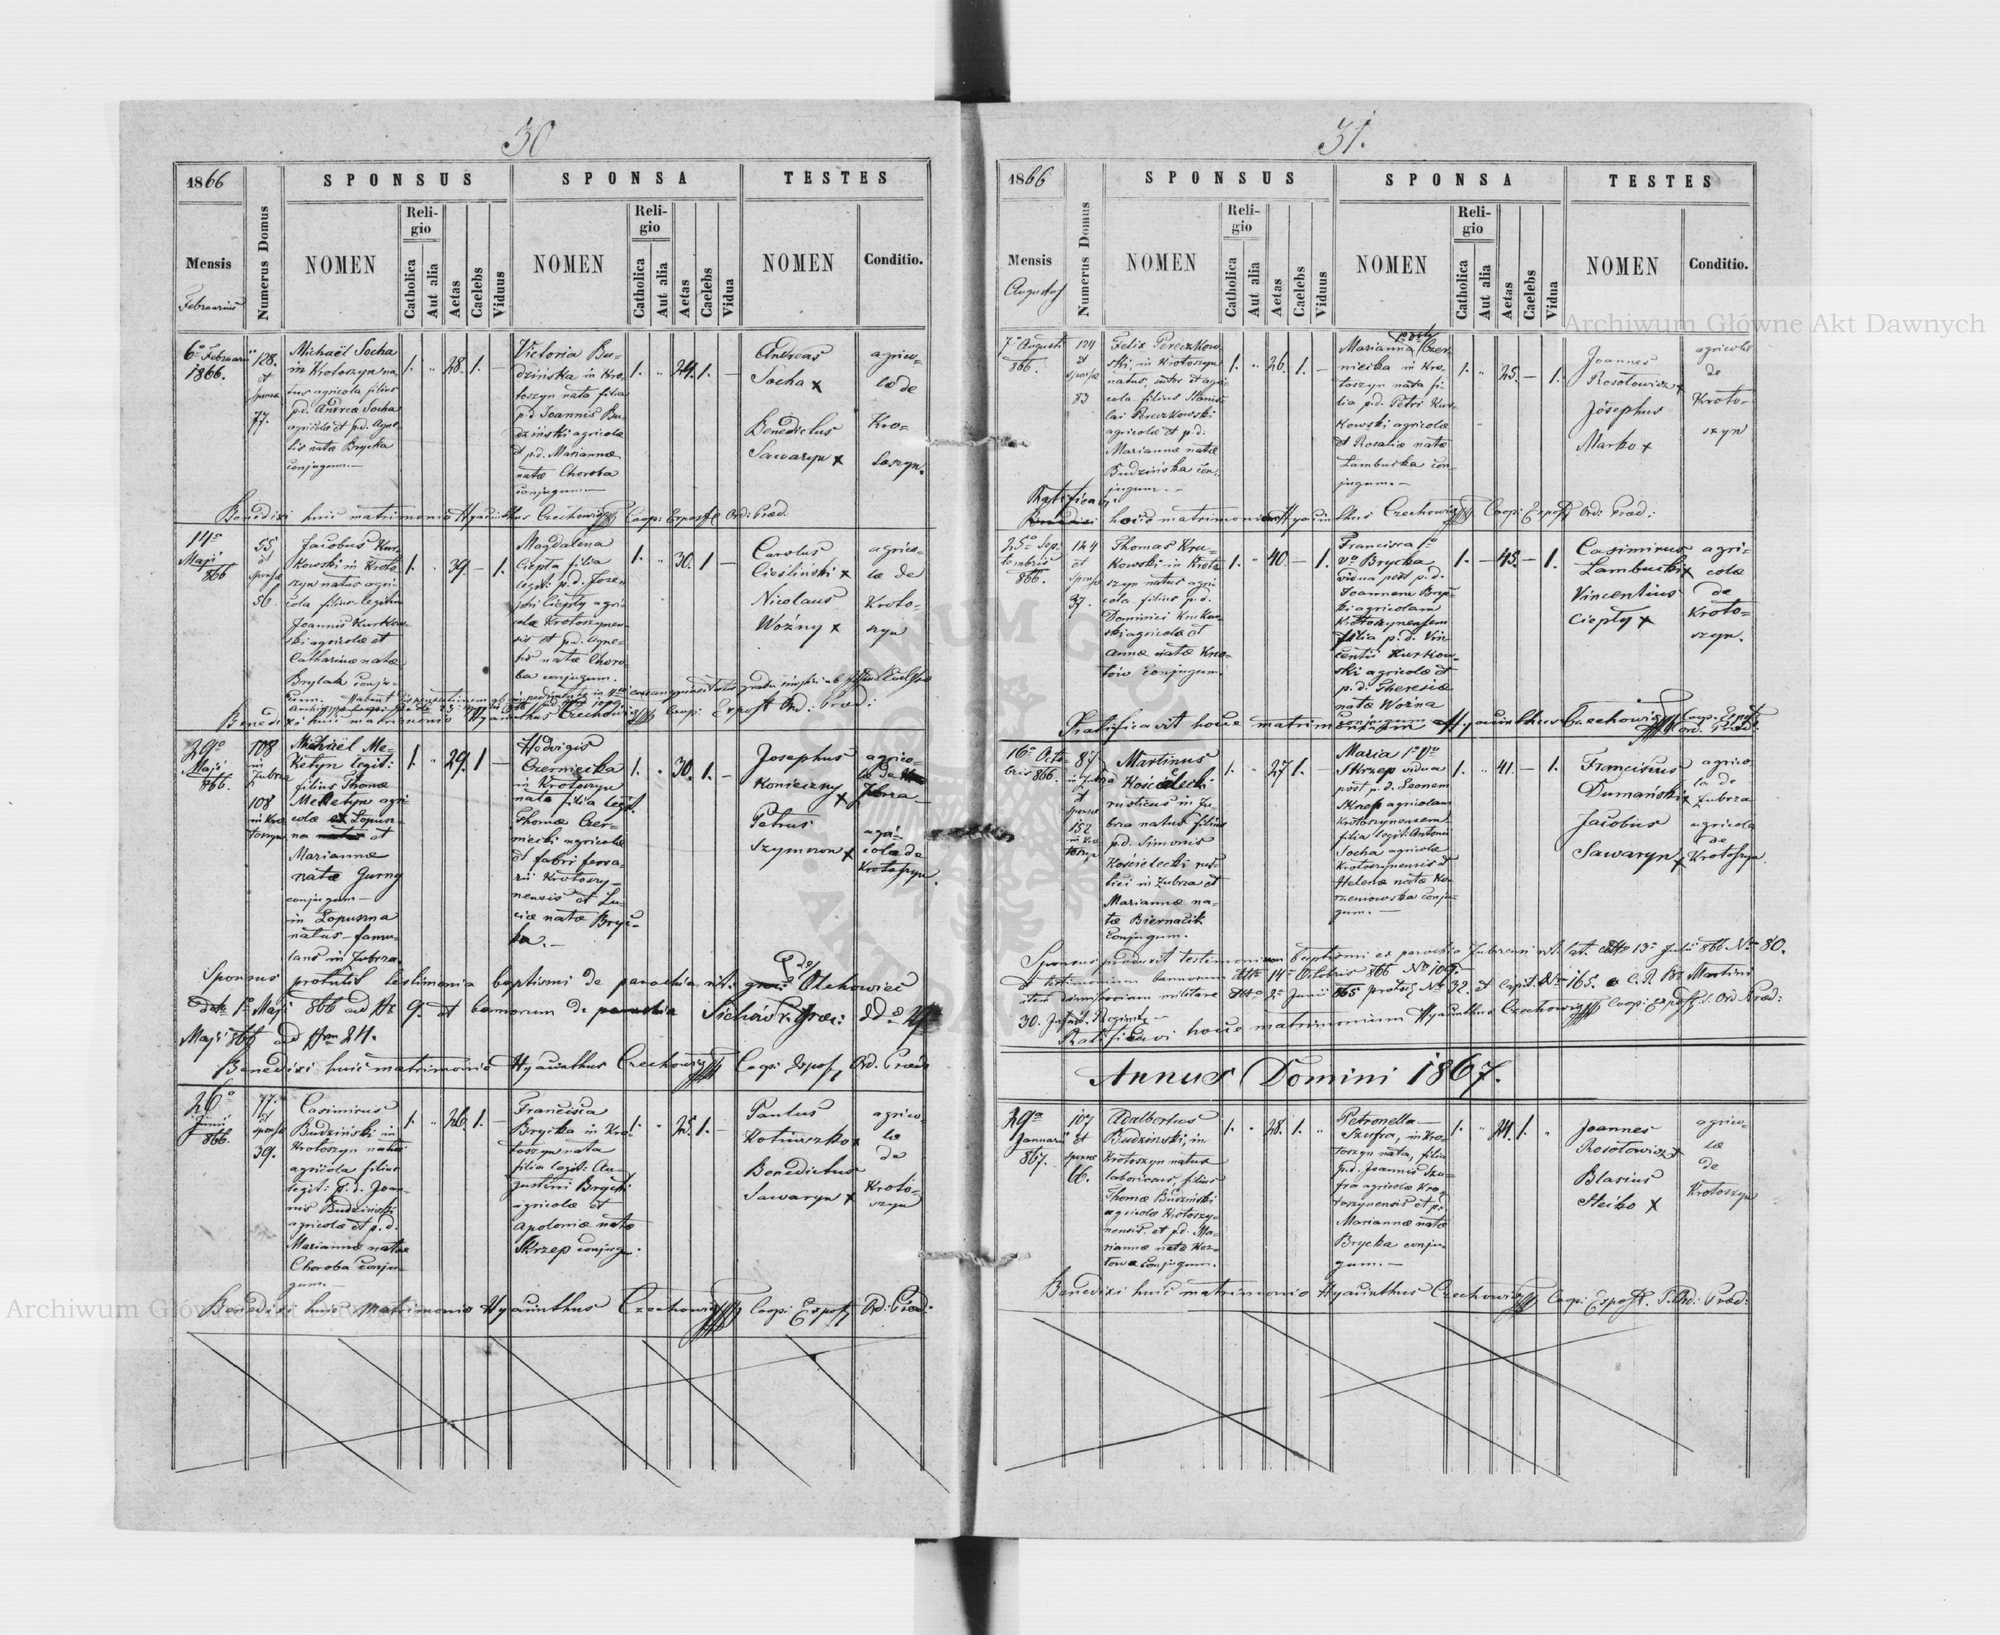 30
1866
SPONSUS
SPONSA
TESTES
Mensis
Februarius
Numerus Domus
NOMEN
Religio
Catholica
Aut alia
Aetas
Caelebs
Viduus
NOMEN
Religio
Catholica
Aut alia
Aetas
Caelebs
Vidua
NOMEN
Conditio.
6o Februarii
1866.
128.
et
sponsæ
77.
Michaël Socha
in Krotoszyn na-
tus agricola filius
p.d. Andreæ Socha
agricolæ et p.d. Agne-
tis natæ Brycka
conjugum.—
1. „ 28. 1. —
Victoria Bu-
dzińska in Kro-
toszyn nata filia
p.d. Joannis Bu-
dziński agricolæ
et p.d. Mariannæ
natæ Choroba
conjugum.—
1. „ 24. 1. —
Andreas
Socha x
Benedictus
Sawaryn x
agrico-
læ de
Kro-
toszyn.
Benedixi huic matrimonio Hyacinthus Czechowicz Coop: Expost Ord: Præd.
14o
Maji
866
55
et
sponsæ
56.
Jacobus Kur-
kowski in Kroto-
szyn natus agri-
cola filius legitim
Joannis Kurkow-
ski agricolæ et
Catharinæ natæ
Brylak conju-
gum.
1. „ 39. — 1.
Magdalena
Ciepta filia
legit: p.d. Josep-
phi Ciepły agri-
colæ Krotoszynen-
sis et p.d. Agne-
tis natæ Choro-
ba conjugum.
1. „ 30. 1 —
Carolus
Cieśliński x
Nicolaus
Woźny x
agrico-
læ de
Kroto-
szyn
Benedixi huic matrimonio Hyacinthus Czechowicz Coop: Expost Ord: Præd:
29o
Maji
866.
108
in
Zubrza
108
in Kro
toszyn
Michaël Me-
ketyn legit:
filius Thomæ
Meketyn agri-
colæ et Lopusz-
na natus et
Mariannæ
natæ Gurny
conjugum—
in Łopuszna
natus—famu-
lans in Zubrza
1. „ 29. 1 —
Hedvigis
Czerniecka
in Krotoszyn
nata filia legit.
Thomæ Czer-
niecki agricolæ
et fabri ferra-
rii Krotoszy-
nensis et Lu-
ciæ natæ Bryc-
ka.—
1. „ 30. 1. —
Josephus
Konieczny x
Petrus
Szymron x
agrico-
la de
Zubrza—
agri-
cola de
Krotoszyn.
Sponsus protulit testimonia baptismi de parochia rit: græ: Olchowiec
ddto 1a Maji 866 ad Nr 9. et bannorum de parochia Sichów r. græc: ddo 27
Maji 866 ad Nrm 24.
Benedixi huic matrimonio Hyacinthus Czechowicz Coop: Expost, Ord. Præd:
26o
Junii
866.
77.
et
sponsæ
39.
Casimirus
Budziński in
Krotoszyn natus
agricola filius
legit: p.d. Joan-
nis Budziński
agricolæ et p.d.
Mariannæ natæ
Choroba conju-
gum.—
1. „ 26. 1. —
Francisca
Brycka in Kro-
toszyn nata
filia legit: Au-
gustini Brycki
agricolæ et
Apoloniæ natæ
Skrzep conjugu:
1. „ 25. 1. —
Paulus
Kotuszko x
Benedictus
Sawaryn x
agrico-
læ
de
Kroto-
szyn
Benedixi huic matrimonio Hyacinthus Czechowicz Coop: Expost, Ord: Præd:
31.
1866
SPONSUS
SPONSA
TESTES
Mensis
Augusti
Numerus Domus
NOMEN
Religio
Catholica
Aut alia
Aetas
Caelebs
Viduus
NOMEN
Religio
Catholica
Aut alia
Aetas
Caelebs
Vidua
NOMEN
Conditio.
7o Augusti
866.
124
et
sponsæ
83
Felix Pereczkow-
ski, in Krotoszyn
natus, sutor et agri-
cola filius Stanis-
lai Pereczkowski
agricolæ et p.d:
Mariannæ natæ
Budzińska con-
jugum.—
1. „ 26. 1. —
Marianna Czer-
niecka in Kro-
toszyn nata fi-
lia p.d. Petri Kur-
kowski agricolæ
et Rosaliæ natæ
Lambucka con-
jugum.—
1. „ 25. — 1.
Joannes
Rosołowicz x
Josephus
Marko x
agricolæ
de
Kroto-
szyn
Ratificavi
Benedixi hocce matrimonium Hyacinthus Czechowicz Coop: Expost Ord: Præd:
25o Sep-
tembris
866.
124
et
sponsæ
37.
Thomas Kru-
kowski in Kroto-
szyn natus agri-
cola filius p.d.
Dominici Krukow-
ski agricolæ et
Annæ natæ Kro-
tów conjugum.
1. „ 40. — 1.
Francisca 1o
vo Brycka
vidua post p.d.
Joannem Bryc-
ki agricolam
Krotoszynensem
filia p.d. Vin-
centii Kurkow-
ski agricolæ et
p.d: Theresiæ
natæ Woźna
conjugum
1. — 45. — 1.
Casimirus
Lambucki x
Vincentius
Ciepły x
agri-
colæ
de
Kroto-
szyn.
Ratificavit hocce matrimonium Hyacinthus Czechowicz Coop: Expost Ord: Præd:
16o Octo
bris 866.
87
in Zubrza
et
sponsæ
152
in Kro
toszyn
Martinus
Kościelecki
rusticus in Zu-
brza natus filius
p.d. Simonis
Kościelecki rus-
tici in Zubrza et
Mariannæ na-
tæ Biernacik
conjugum.
1. „ 27 1. —
Maria 1o Vo
Skrzep vidua
post p.d. Leonem
Skrzep agricolam
Krotoszynensem
filia legit: Antonii
Socha agricolæ
Krotoszynensis et
Helenæ natæ Ko-
rzeniowska conju-
gum.—
1. „ 41. — 1.
Franciscus
Dumański x
Jacobus
Sawaryn x
agrico-
la de
Zubrza
agricola
de
Krotoszyn.
Sponsus produxit testimonium baptismi ex parochia Zubrensi rit. lat. ddto 13a Julii 866 Nro 80.
et testimonium bannorum ddto 14a Octobris 866 No 109.—
30. Infant. Regimts—
Ratificavi hocce matrimonium Hyacinthus Czechowicz Coop: Expost. Ord: Præd:
Annus Domini 1867.
29a
Januarii
867.
107
et
sponsæ
66.
Adalbertus
Budziński, in
Krotoszyn natus
laboriosus, filius
Thomæ Budziński
agricolæ Krotoszy-
nensis et p.d. Ma-
riannæ natæ Koz-
łowa conjugum.
1. „ 28. 1. „
Petronella—
Szufra, in Kro-
toszyn nata, filia
p.d. Joannis Szu-
fra agricolæ Kro-
toszynensis et p.
Mariannæ natæ
Brycka conju-
gum.—
1. „ 24. 1. „
Joannes
Rosołowicz x
Blasius
Steiko x
agrico-
læ
de
Krotoszyn
Benedixi huic matrimonio Hyacinthus Czechowicz Coop: Expost. S. Ord: Præd:
Archiwum Główne Akt Dawnych
Archiwum Główne Akt Dawnych